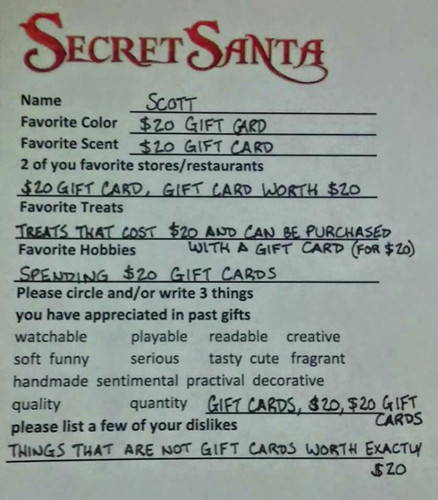 SECRET SANTA
Name SCOTT
Favorite Color $20 GIFT CARD
Favorite Scent $20 GIFT CARD
2 of you favorite stores/restaurants
$20 GIFT CARD, GIFT CARD WORTH $20
Favorite Treats
TREATS THAT COST $20 AND CAN BE PURCHASED
WITH A GIFT CARD (FOR $20)
Favorite Hobbies
SPENDING $20 GIFT CARDS
Please circle and/or write 3 things
you have appreciated in past gifts
watchable playable readable creative
soft funny serious tasty cute fragrant
handmade sentimental practival decorative
quality quantity GIFT CARDS, $20, $20 GIFT
CARDS
please list a few of your dislikes
THINGS THAT ARE NOT GIFT CARDS WORTH EXACTLY
$20